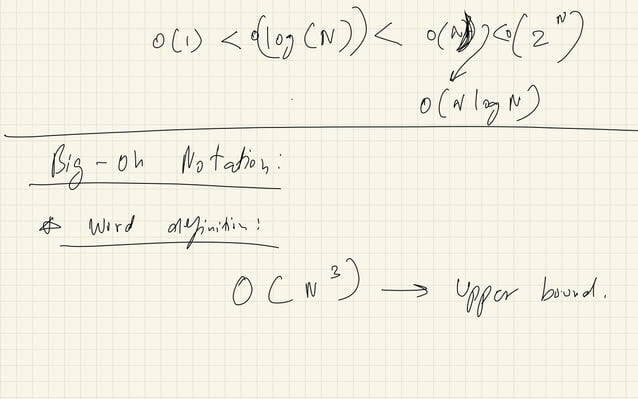 O(1) < O(log(N)) < O(N) < O(2^N)
O(N log N)
Big-Oh Notation:
* Word definition:
O(N^3) → Upper bound.